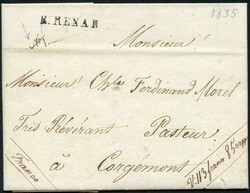 1835
M. RENAN
Monsieur
Monsieur Chles Ferdinand Morel
Très Révérant Pasteur
à Corgemont
Franco